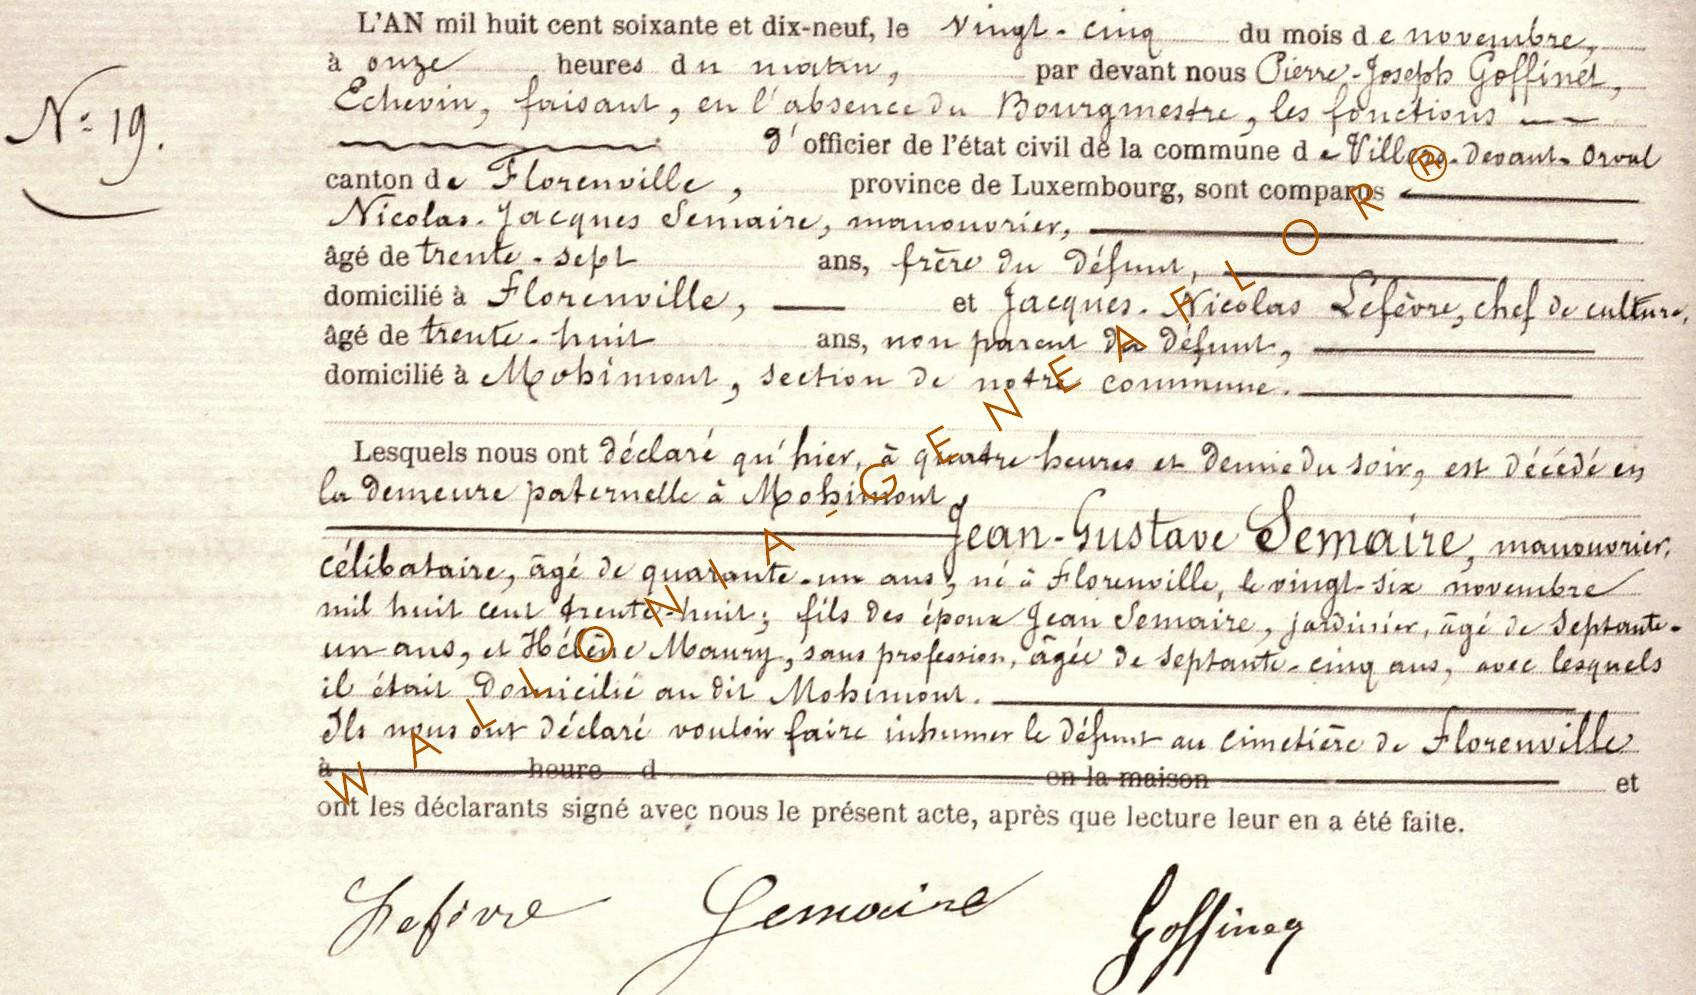 L'AN mil huit cent soixante et dix-neuf, le vingt-cinq du mois de novembre,
à onze heures du matin, par devant nous Pierre-Joseph Goffinet,
Echevin, faisant, en l'absence du Bourgmestre, les fonctions
N° 19.
d'officier de l'état civil de la commune de Villers-devant-Orval
canton de Florenville, province de Luxembourg, sont comparus
Nicolas-Jacques Semaire, manouvrier,
âgé de trente-sept ans, frère du défunt,
domicilié à Florenville, et Jacques-Nicolas Lefèvre, chef de culture,
âgé de trente-huit ans, non parent du défunt,
domicilié à Mohimont, section de notre commune.
Lesquels nous ont déclaré qu'hier, à quatre heures et demie du soir, est décédé en
la demeure paternelle à Mohimont,
Jean-Gustave Semaire, manouvrier,
célibataire, âgé de quarante-un ans, né à Florenville, le vingt-six novembre
mil huit cent trente-huit; fils des époux Jean Semaire, jardinier, âgé de septante-
un ans, et Hélène Maury, sans profession, âgée de septante-cinq ans, avec lesquels
il était domicilié au dit Mohimont.
Ils nous ont déclaré vouloir faire inhumer le défunt au cimetière de Florenville
à heure d en la maison et
ont les déclarants signé avec nous le présent acte, après que lecture leur en a été faite.
Lefèvre Semaire Goffinet
WALLONIA-GENEAFLOR R ®